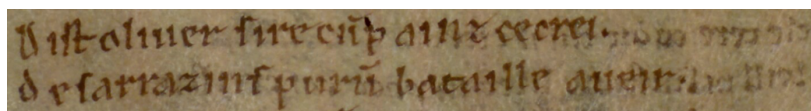 Dist oliuer sire cũp ainz ce crei.
De sarrazins purũ bataille aueir.